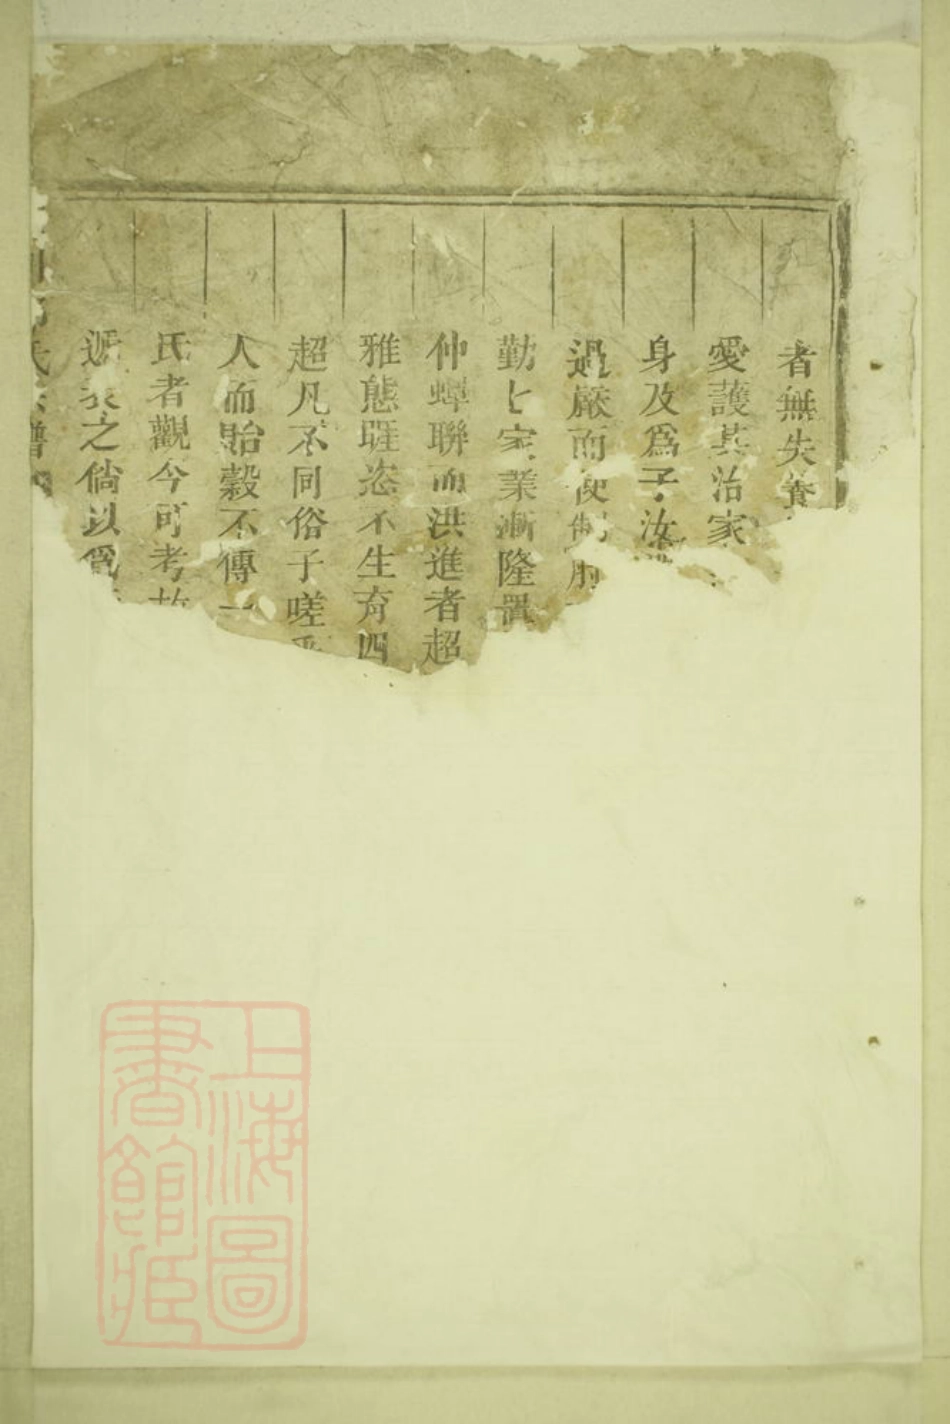 者無失養
愛護其治家
身及爲子汝
過嚴而使制
勤亡家業漸隆置
仲蟬聯而洪進者超
雅態睚恣不生育四
超凡不同俗子嗟乎
人而貽穀不傳一
氏者觀今可考故
遞衰之倘以爲
氏宗譜
上海圖
書館藏